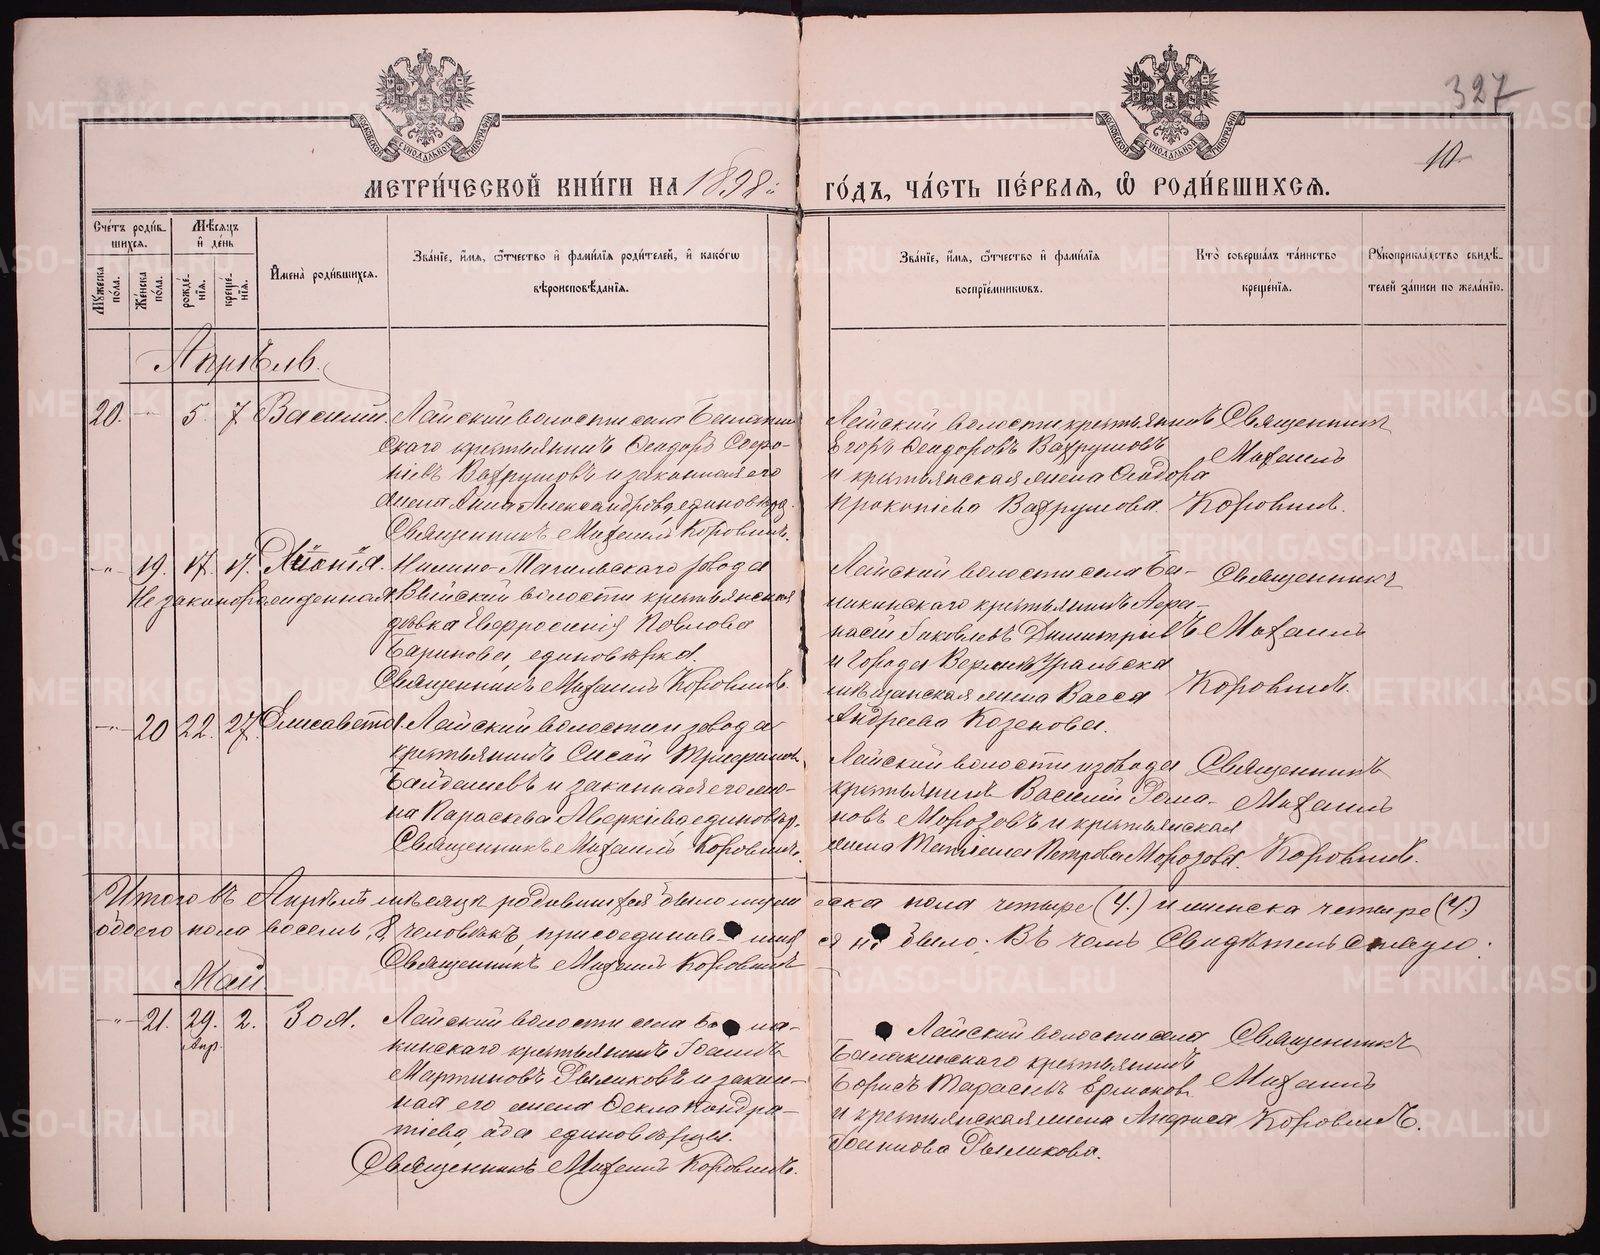 327
10
МЕТРИ́ЧЕСКОЙ КНИ́ГИ НА 1898й
ГО́ДЪ, ЧА́СТЬ ПЕ́РВАЯ, Ѡ҆ РОДИ́ВШИХСЯ.
Сче́тъ роди́вшихся.
Мужеска по́ла.
Же́нска по́ла.
Мѣ́сяцъ и҆ де́нь
рожде́нїя.
креще́нїя.
И҆мена̀ роди́вшихся.
Зва́нїе, и҆́мя, ѻ҆́тчество и҆ фами́лїя роди́телей, и҆ како́гѡ вѣроисповѣ́данїя.
Зва́нїе, и҆́мя, ѻ҆́тчество и҆ фами́лїя воспрїе́мниковъ.
Кто̀ соверша́лъ та́инство креще́нїя.
Рукоприкла́дство свидѣ́телей за́писи по жела́нїю.
Апрѣль.
20. — 5. 7 Василій.
Лайской волости села Балакин
скаго крестьянинъ Ѳеодоръ Софро-
ніевъ Вахрушовъ и законная его
жена Анна Александрова единовѣр.
Священникъ Михаилъ Коровинъ.
Лайской волости крестьянинъ
Егоръ Ѳеодоровъ Вахрушовъ
и крестьянская жена Ѳеодора
Прокопіева Вахрушова.
Священникъ
Михаилъ
Коровинъ.
-"- 19. 17. 17.
Незаконорожденная
Нижно-Тагильскаго завода
Выйской волости крестьянская
дѣвка Евфросинія Павлова
Баринова, единовѣрка.
Священникъ Михаилъ Коровинъ.
Лайской волости села Ба-
лакинскаго крестьянинъ Афа-
насій Іаковлевъ Димитріевъ
и города Верхнеуральска
мѣщанская жена Васса
Андреева Козекова.
Священникъ
Михаилъ
Коровинъ.
-"- 20 22. 27. Елисавета.
Лайской волости и завода
крестьянинъ Сисой Трифонов
Байдашевъ и законная его же-
на Параскева Аверкіева единовѣр.
Священникъ Михаилъ Коровинъ.
Лайской волости и завода
крестьянинъ Василій Рома-
новъ Морозовъ и крестьянская
жена Татіана Петрова Морозова.
Священникъ
Михаилъ
Коровинъ.
Итого въ Апрѣлѣ мѣсяцѣ родившихся было мужеска пола четыре (4.) и женска четыре (4.)
обоего пола восемь, 8, человѣкъ, присоединив шихся не было. Въ чемъ Свидѣтельствую.
Священникъ Михаилъ Коровинъ
Май
-"- 21. 29. Апр. 2. Зоя.
Лайской волости села Бала-
кинскаго крестьянинъ Іоаннъ
Мартиновъ Рыжиковъ и закон-
ная его жена Ѳекла Кондра-
тіева, оба единовѣрцы.
Священникъ Михаилъ Коровинъ.
Лайской волости села
Балакинскаго крестьянинъ
Борисъ Тарасіевъ Ермаков
и крестьянская жена
Іоаннова Рыжикова.
Священникъ
Михаилъ
Коровинъ.
METRIKI.GASO-URAL.RU